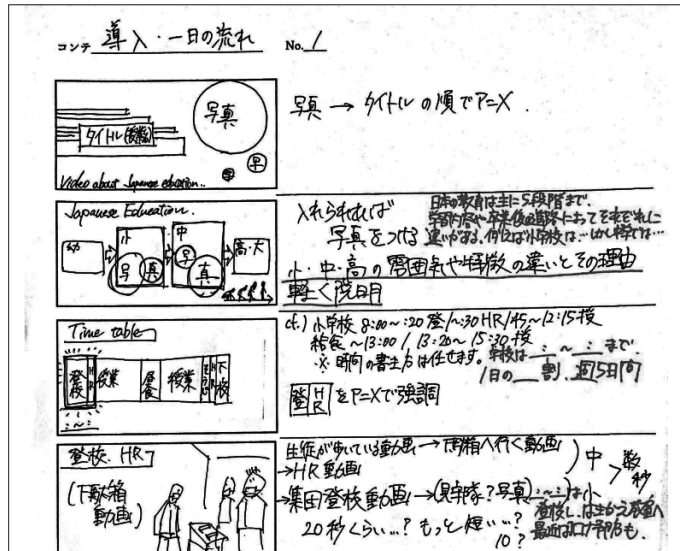 コンテ 導入・一日の流れ No. 1
写真
タイトル(後藤)
早
Video about Japanese education..
写真 → タイトルの順でアニメ.
Japanese Education.
幼
小
中
高・大
写
真
写
真
入れられれば
写真をつける
日本の教育は主に5段階まで.
学習内容や卒業後の進路によってそれぞれに
違いがある。例えば小学校は…しかし中では…
小・中・高の雰囲気や特徴の違いとその理由
軽く説明
Time table
登校
HR
授業
昼食
授業
そうじ
HR
下校
:~:
cf.) 小学校 8:00~:20 登/~:30 HR/:45~12:15 授
給食 ~13:00 / 13:20~15:30 授
※ 時間の書き方は任せます。
学校は _:_ ~ _:_ まで.
1日の __ 割. 週5日間
登 HR をアニメで強調
登校. HR
(下駄箱
動画)
生徒が歩いている動画 → 下駄箱へ行く動画
→ HR動画
中
→ 集団登校動画 →
小
数秒
20秒くらい…? もっと短い…?
10?